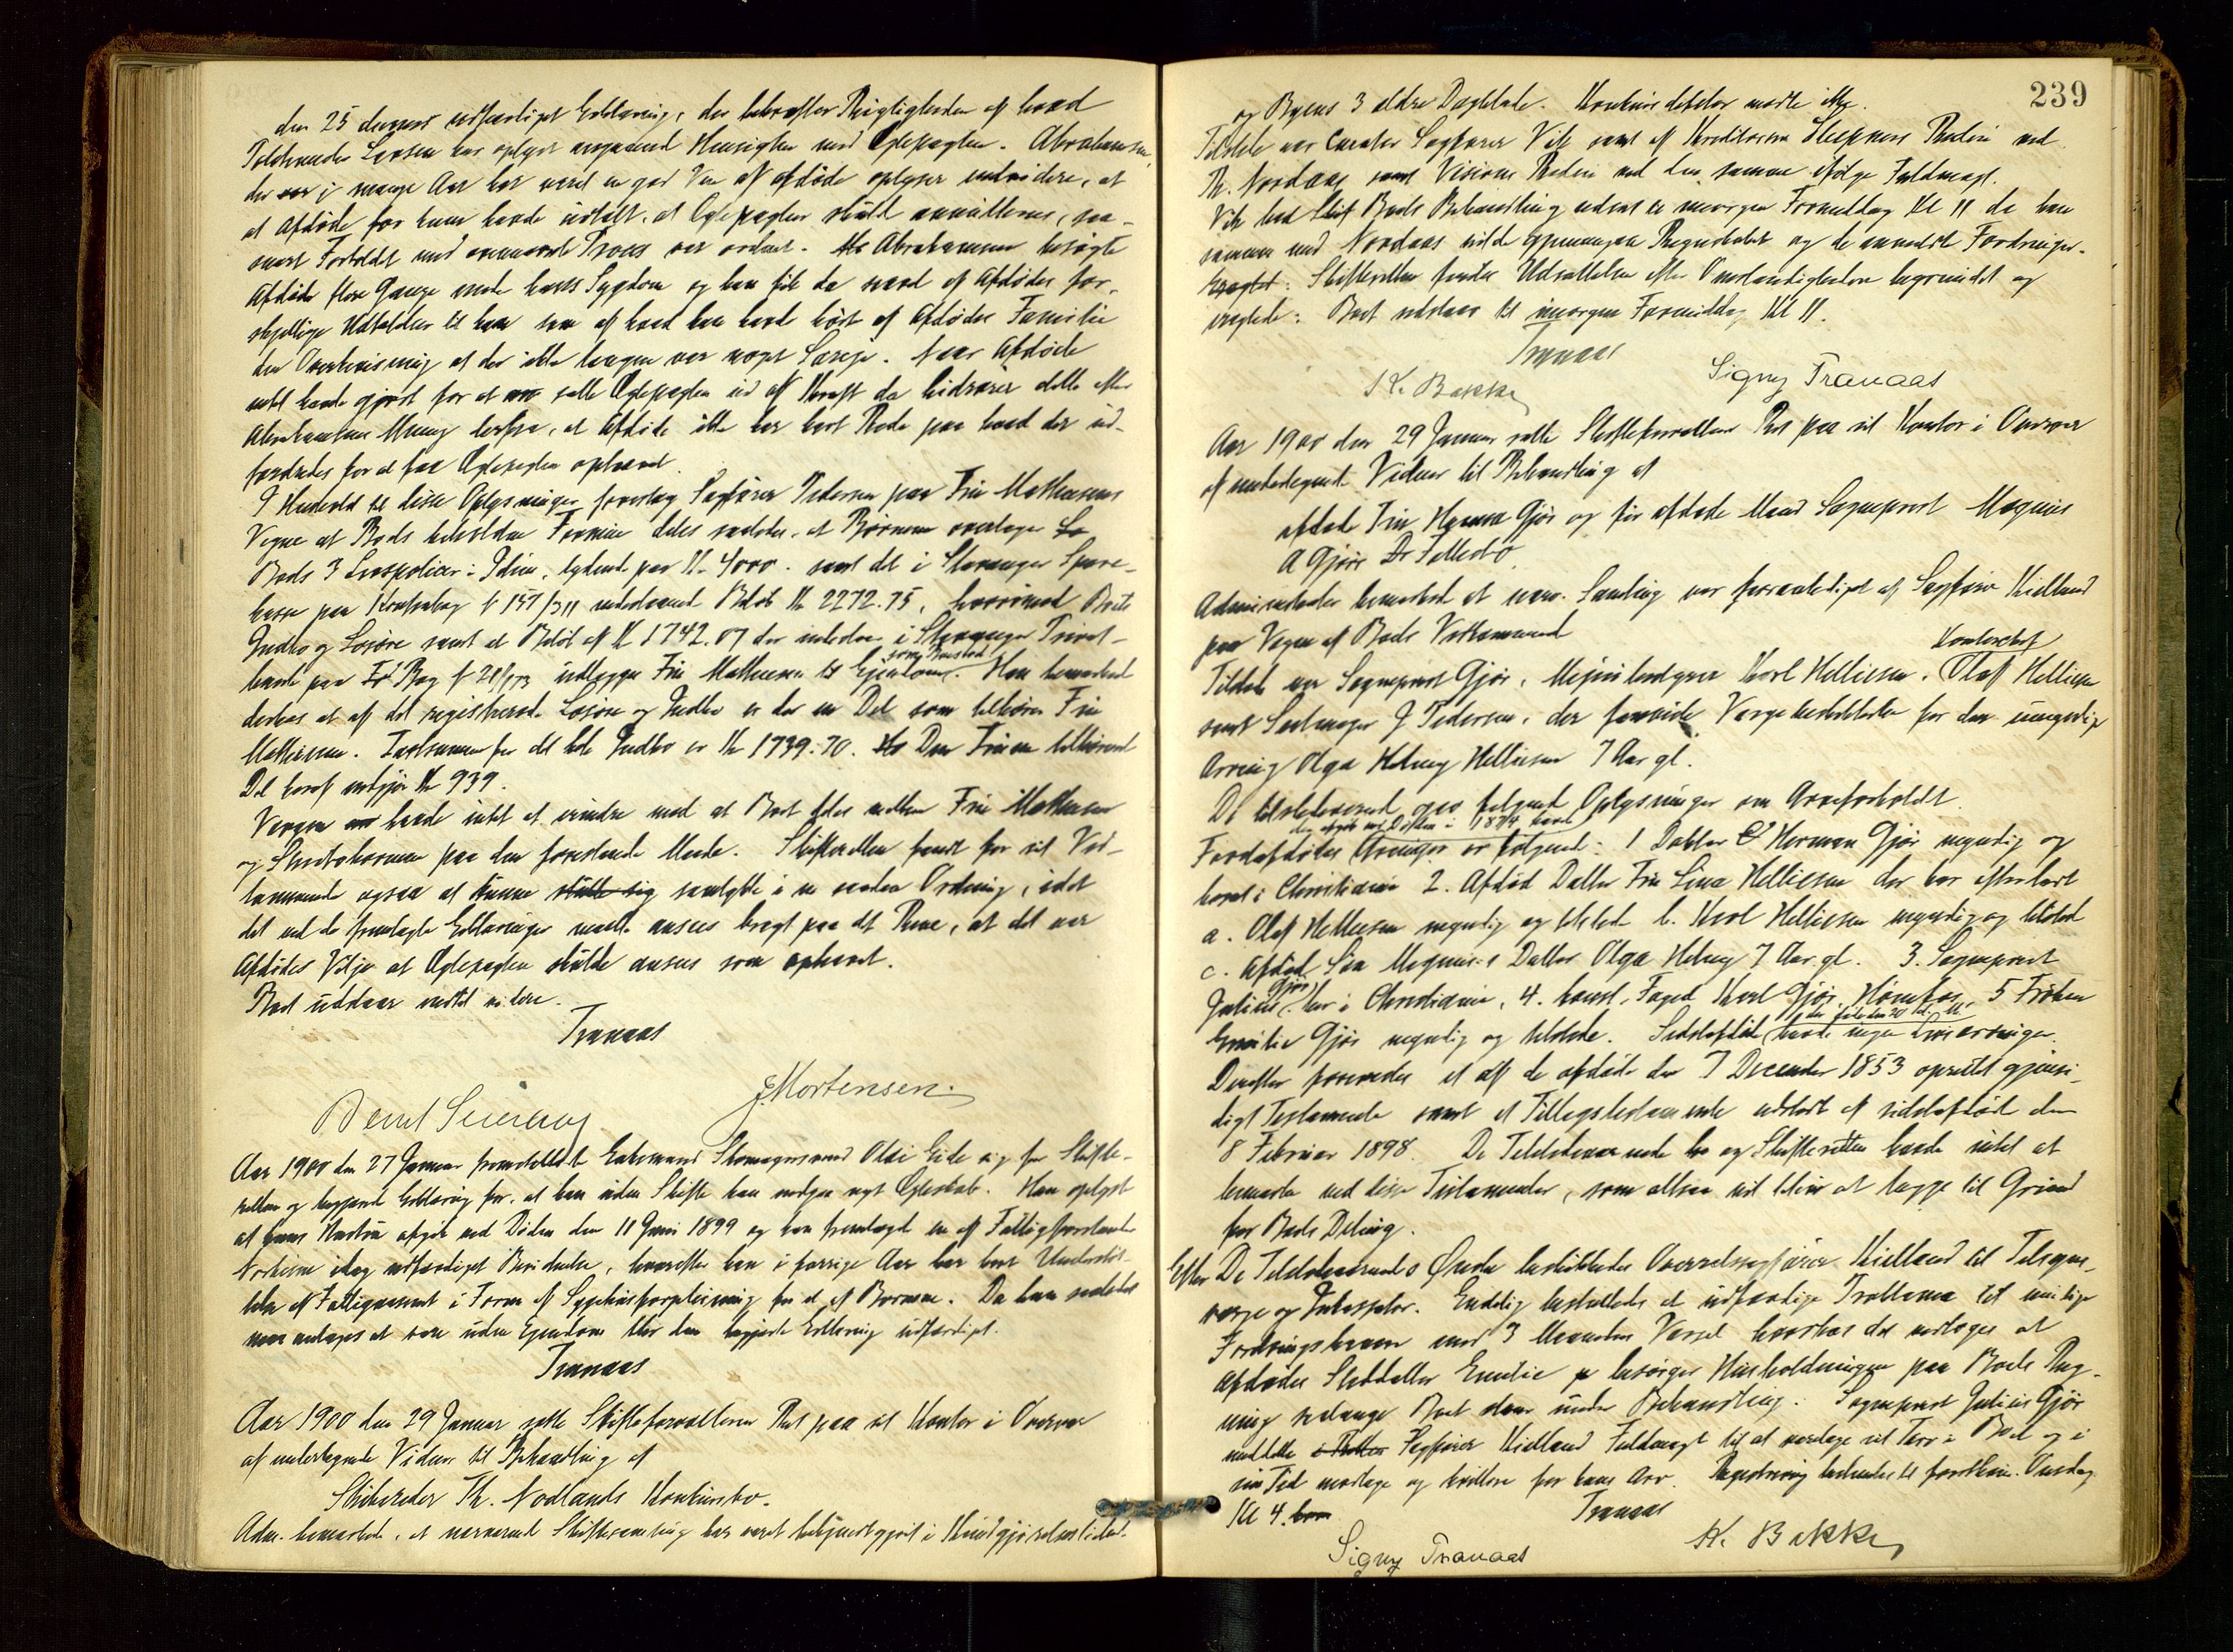 den 25 dennes udfærdiget Erklæring, der bekræfter Rigtigheden af hvad
Toldkasserer Larsen har oplyst angaaende Hensigten med Ægtepagten. Abrahamsen,
der i mange Aar har været en god Ven af afdøde oplyser endvidere, at
at Afdøde for ham havde udtalt, at Ægtepagten skulde annulleres, saa-
snart Forholdet med Proces var ordnet. Abrahamsen besøgte
Afdøde flere Gange under hans Sygdom og han fik da saavel af Afdødes for-
skjellige Udtalelser til ham som af hvad han havde hørt af Afdødes Familie
den Overbevisning at der ikke længere var noget Særeje. Naar Afdøde
intet havde gjort for at sætte Ægtepagten ud af Kraft da hidrører dette efter
Abrahamsens Mening derfra, at Afdøde ikke har havt Rede paa hvad der ud-
fordredes for at faa Ægtepagten ophævet.
I Henhold til disse Oplysninger foreslog Sagfører Pedersen paa Fru Mathiesens
Vegne at Boets beholdne Formue deles saaledes, at Børnene overtager
Boets 3 Livspolicer i Idun, lydende paa Kr. 4000. samt det i Stavanger Spare-
kasse paa Kontrabog № 157/311 indestaaende Beløb Kr 2272.75, hvorimod Boets
Indbo og Løsøre samt et Beløb af Kr 1742.07 der indestaar i Stavanger Privat-
bank paa Bog № udlægges Fru Mathiesen til Eiendom. Han bemærkede
derhos at af det registrerede Løsøre og Indbo er der en Del som tilhører Fru
Mathiesen. Taxtsummen for det hele Indbo er Kr 1739.70. Den Fruen tilhørende
Del heraf udgjør Kr 939.
Vergen havde intet at erindre mod at Boet deles mellem Fru Mathiesen
og Børnene paa den foreslaaede Maade. Skifteretten fandt for sit Ved-
kommende ogsaa at kunne samtykke i en saadan Ordning, idet
det ved de fremlagte Erklæringer maatte ansees bragt paa det Rene, at det var
Afdødes Vilje at Ægtepagten skulde ansees som ophævet.
Boet udstaar indtil videre.
Tranaas
J. Mortensen
Aar 1900 den 27 Januar fremstillede Enkemand Skomagersvend Olai Eide sig for Skifte-
retten og begjærede Erklæring for, at han uden Skifte kan indgaa nyt Ægteskab. Han oplyste
at hans Hustru afgik ved Døden den 11 Juni 1899 og han fremlagde en af Fattigforstander
idag udfærdiget Bevidnelse, hvorefter han i forrige Aar har havt Understøt-
telse af Fattigvæsenet i Form af Sygehusforpleining for et af Børnene. Da han saaledes
maa antages at være uden Eiendom blev den begjærte Erklæring udfærdiget.
Tranaas
Aar 1900 den 29 Januar satte Skifteforvalteren Ret paa sit Kontor i Overvær
af undertegnede Vidner til Behandling af
Skibsreder Th. Nodlands Konkursbo.
Adm. bemærkede, at nærværende Skiftesamling har været bekjendtgjort i Kundgjørelsestidende
239
og Byens 3 ældre Dagblade. Konkursdebitor mødte ikke.
Tilstede var Curator Sagfører Vik samt af Kreditorerne Sleipners Rederi ved
Th. Nordaas samt Visions Rederi ved den samme ifølge Fuldmagt.
Vik bad Boets Behandling udsat til imorgen Formiddag Kl 11 da han
sammen med Nordaas vilde gjennemgaa Regnskabet og de anmeldte Fordringer.
Skifteretten fandt Udsættelsen efter Omstændighederne begrundet og
eragtede: Boet udstaar til imorgen Formiddag Kl 11.
Tranaas
K. Bakke Signy Tranaas
Aar 1900 den 29 Januar satte Skifteforvalteren Ret paa sit Kontor i Overvær
af undertegnede Vidner til Behandling af
afdøde Fru Hanna Gjør og før afdøde Mand Sogneprest Magnus
A Gjørs Fællesbo
Administrator bemærkede at nærv. Samling var foranlediget af Sagfører Kielland
paa Vegne af Boets Vedkommende
Kontorchef
Tilstede var Sogneprest Gjør, Karl Helliesen, Olaf Helliesen
samt J. Pedersen, der foreslaaes Verge beskikket for den umyndige
Arving Olga Helvig Helliesen 7 Aar gl.
De tilstedeværende gav følgende Oplysninger om Arveforholdet.
der afgik ved Døden i 1874 havde
Førstafdødes Arvinger er følgende: 1 Datter Herman Gjør myndig og
bosat i Christiania 2. Afdød Datter Fru Lina Helliesen der har efterladt
a. Olaf Helliesen myndig og tilstede b. Karl Helliesen myndig og tilstede
c. Afdød Søn Magnus's Datter Olga Helvig 7 Aar gl. 3. Sogneprest
Julius Gjør her i Christiania, 4. const. Foged Karl Gjør, Hønefos, 5 Frøken
Emilie Gjør myndig og tilstede. Sidstafdøde havde ingen Livsarvinger.
Derefter foreviste et af de afdøde den 7 December 1853 oprettet gjensi-
digt Testamente samt et Tillægstestamente udstedt af sidstafdøde den
8 Februar 1898. De Tilstedeværende og Skifteretten havde intet at
bemærke ved disse Testamenter, som altsaa vil blive at lægge til Grund
for Boets Deling.
Efter De Tilstedeværendes Ønske beskikkedes Overretssagfører Kielland til Tilsyns-
verge og Inkassator. Endelig besluttedes at udfærdige Proklama til mulige
Fordringshavere med 3 Maaneders Varsel hvorhos det vedtoges at
Afdødes Steddatter Emilie besørger Husholdningen paa Boets Reg-
ning saalænge Boet staar under Behandling. Sogneprest Julius Gjør
meddelte Sagfører Kielland Fuldmagt til at varetage sit Tarv i Boet og i
sin Tid modtage og kvittere for hans Arv. Registrering berammedes til førstk. Onsdag
Kl 4.
Tranaas
Signy Tranaas K. Bakke